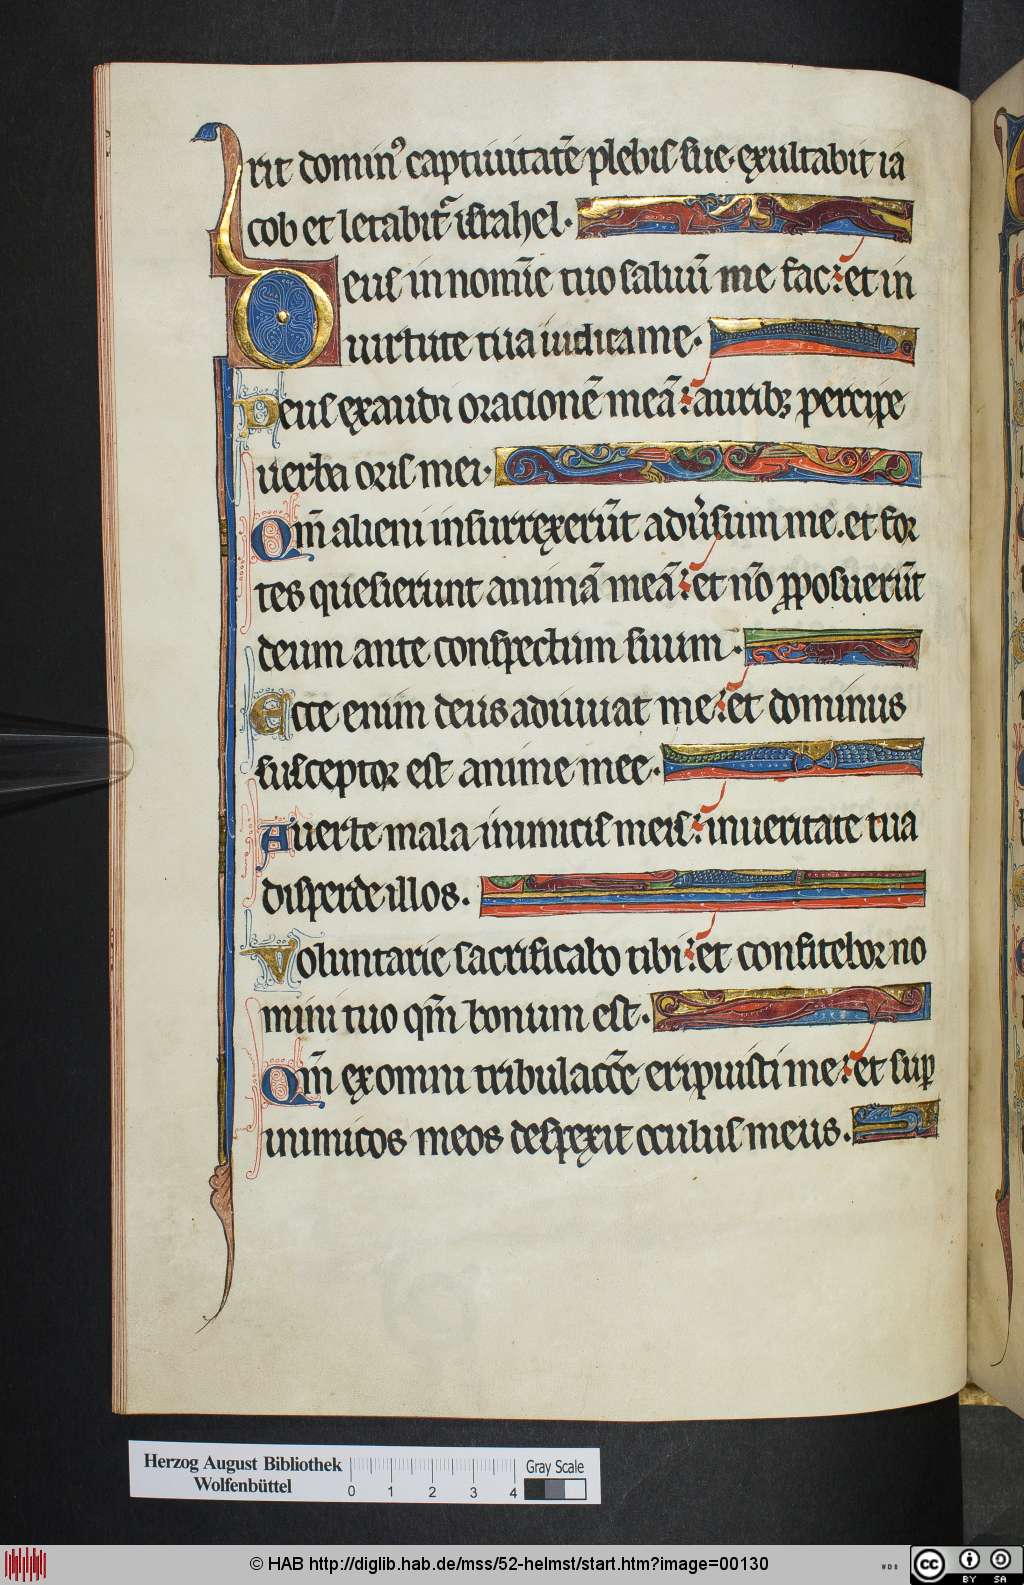 rit domin᷒ captiuitatē plebis sue. exultabit ia
cob et letabit᷑ israhel.
Deus in nomīe tuo saluū me fac: et in
uirtute tua iudica me.
Deus exaudi oracionē meā: auribꝫ percipe
uerba oris mei.
Qm̄ alieni insurrexerūt adu᷑sum me. et for
tes quesierunt animā meā: et nō ꝓposuerūt
deum ante conspectum suum.
Ecce enim deus adiuuat me: et dominus
susceptor est anime mee.
Auerte mala inimicis meis: in ueritate tua
disperde illos.
Voluntarie sacrificabo tibi: et confitebor no
mini tuo qm̄ bonum est.
Qm̄ ex omni tribulacōe eripuisti me: et suꝑ
inimicos meos despexit oculus meus.
Herzog August Bibliothek
Wolfenbüttel
0 1 2 3 4
Gray Scale
© HAB http://diglib.hab.de/mss/52-helmst/start.htm?image=00130
WDB
cc
BY SA